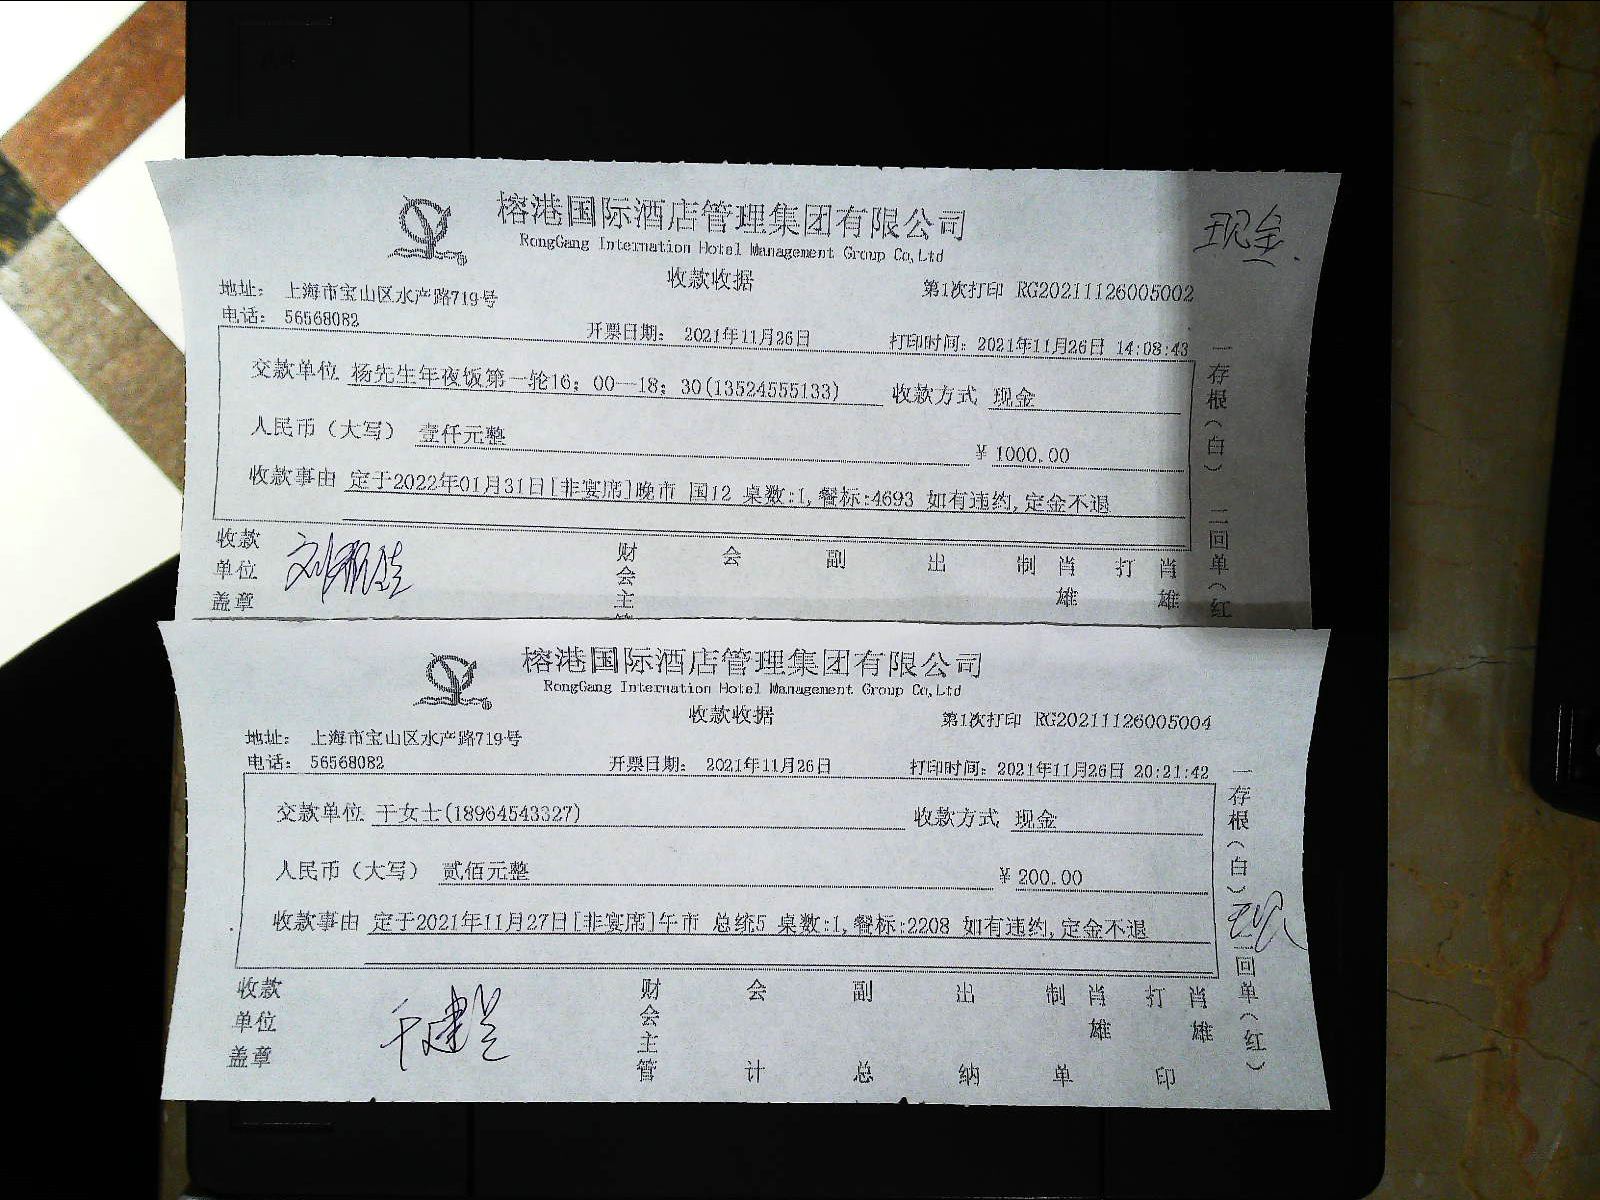 榕港国际酒店管理集团有限公司
RongGang Internation Hotel Management Group Co,Ltd
现金
收款收据
第1次打印 RG20211126005002
地址： 上海市宝山区水产路719号
电话： 56568082
开票日期： 2021年11月26日
打印时间：2021年11月26日 14:08:43
交款单位 杨先生年夜饭第一轮16：00—18：30(13524555133)
收款方式 现金
人民币（大写） 壹仟元整
¥ 1000.00
收款事由 定于2022年01月31日[非宴席]晚市 国12 桌数:1,餐标:4693 如有违约,定金不退
收款单位盖章
财会主
会
副
出
制
肖雄
打
肖雄
一存根（白） 二回单（红
榕港国际酒店管理集团有限公司
RongGang Internation Hotel Management Group Co,Ltd
收款收据
第1次打印 RG20211126005004
地址： 上海市宝山区水产路719号
电话： 56568082
开票日期： 2021年11月26日
打印时间：2021年11月26日 20:21:42
交款单位 于女士(18964543327)
收款方式 现金
人民币（大写） 贰佰元整
¥ 200.00
收款事由 定于2021年11月27日[非宴席]午市 总统5 桌数:1,餐标:2208 如有违约,定金不退
收款单位盖章
财会主管
会计
副总
出纳
制单
肖雄
打印
肖雄
一存根（白） 二回单（红）